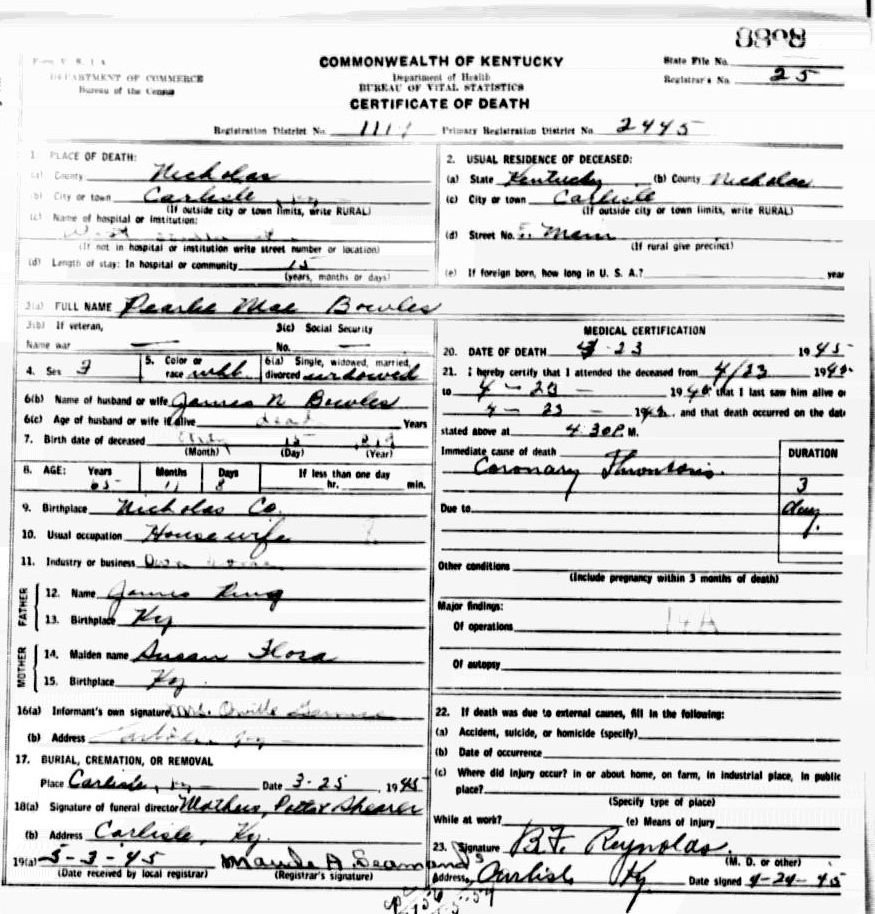 8898
Form V. S. 1-A
DEPARTMENT OF COMMERCE
Bureau of the Census
COMMONWEALTH OF KENTUCKY
Department of Health
BUREAU OF VITAL STATISTICS
CERTIFICATE OF DEATH
State File No.
Registrar's No. 25
Registration District No. 111 Primary Registration District No. 2445
1. PLACE OF DEATH:
(a) County Nicholas
(b) City or town Carlisle, Ky
(If outside city or town limits, write RURAL)
(c) Name of hospital or institution:
West
(If not in hospital or institution write street number or location)
(d) Length of stay: In hospital or community 15
(years, months or days)
2. USUAL RESIDENCE OF DECEASED:
(a) State Kentucky (b) County Nicholas
(c) City or town Carlisle
(If outside city or town limits, write RURAL)
(d) Street No. E. Main
(If rural give precinct)
(e) If foreign born, how long in U. S. A.? year
3(a) FULL NAME Pearlie Mae Bowles
3(b) If veteran,
Name war —
3(c) Social Security
No. —
4. Sex F
5. Color or
race wht
6(a) Single, widowed, married,
divorced widowed
6(b) Name of husband or wife James N Bowles
6(c) Age of husband or wife if alive dead Years
7. Birth date of deceased 15
(Month) (Day) (Year)
8. AGE: Years Months Days If less than one day
65 11 8 hr. min.
9. Birthplace Nicholas Co.
10. Usual occupation Housewife
11. Industry or business Own home
FATHER
12. Name James King
13. Birthplace Ky
MOTHER
14. Maiden name Susan Flora
15. Birthplace Ky.
16(a) Informant's own signature Mrs. Orville
(b) Address Carlisle, Ky
17. BURIAL, CREMATION, OR REMOVAL
Place Carlisle, Ky Date 3-25, 1945
18(a) Signature of funeral director Mathers, Potts & Shearer
(b) Address Carlisle, Ky.
19(a) 5-3-45 Maude A. Seamands
(Date received by local registrar) (Registrar's signature)
MEDICAL CERTIFICATION
20. DATE OF DEATH 4-23 1945
21. I hereby certify that I attended the deceased from 4/23 194
to 4-23- 194 that I last saw him alive on
4-23- 194, and that death occurred on the date
stated above at 4:30 P. M.
Immediate cause of death DURATION
Coronary Thrombosis. 3
Due to day
Other conditions
(Include pregnancy within 3 months of death)
Major findings:
Of operations
Of autopsy
22. If death was due to external causes, fill in the following:
(a) Accident, suicide, or homicide (specify)
(b) Date of occurrence
(c) Where did injury occur? in or about home, on farm, in industrial place, in public
place?
(Specify type of place)
While at work? (e) Means of Injury
23. Signature B. F. Reynolds.
(M. D. or other)
Address, Carlisle Ky Date signed 4-24-45